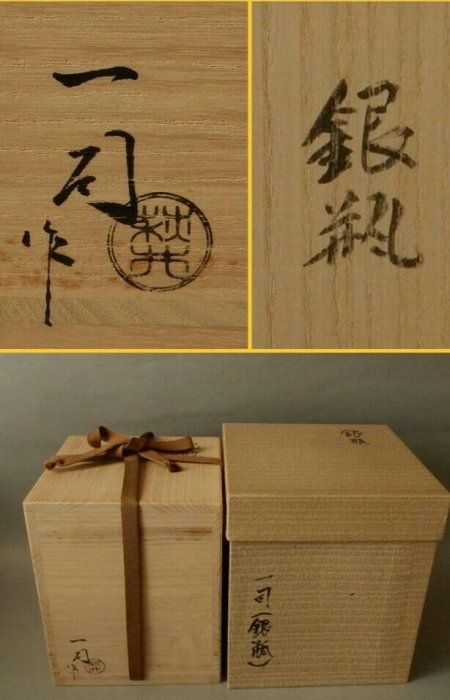 一司
作
萩井
銀瓶
銀瓶
一司
作
一司(銀瓶)